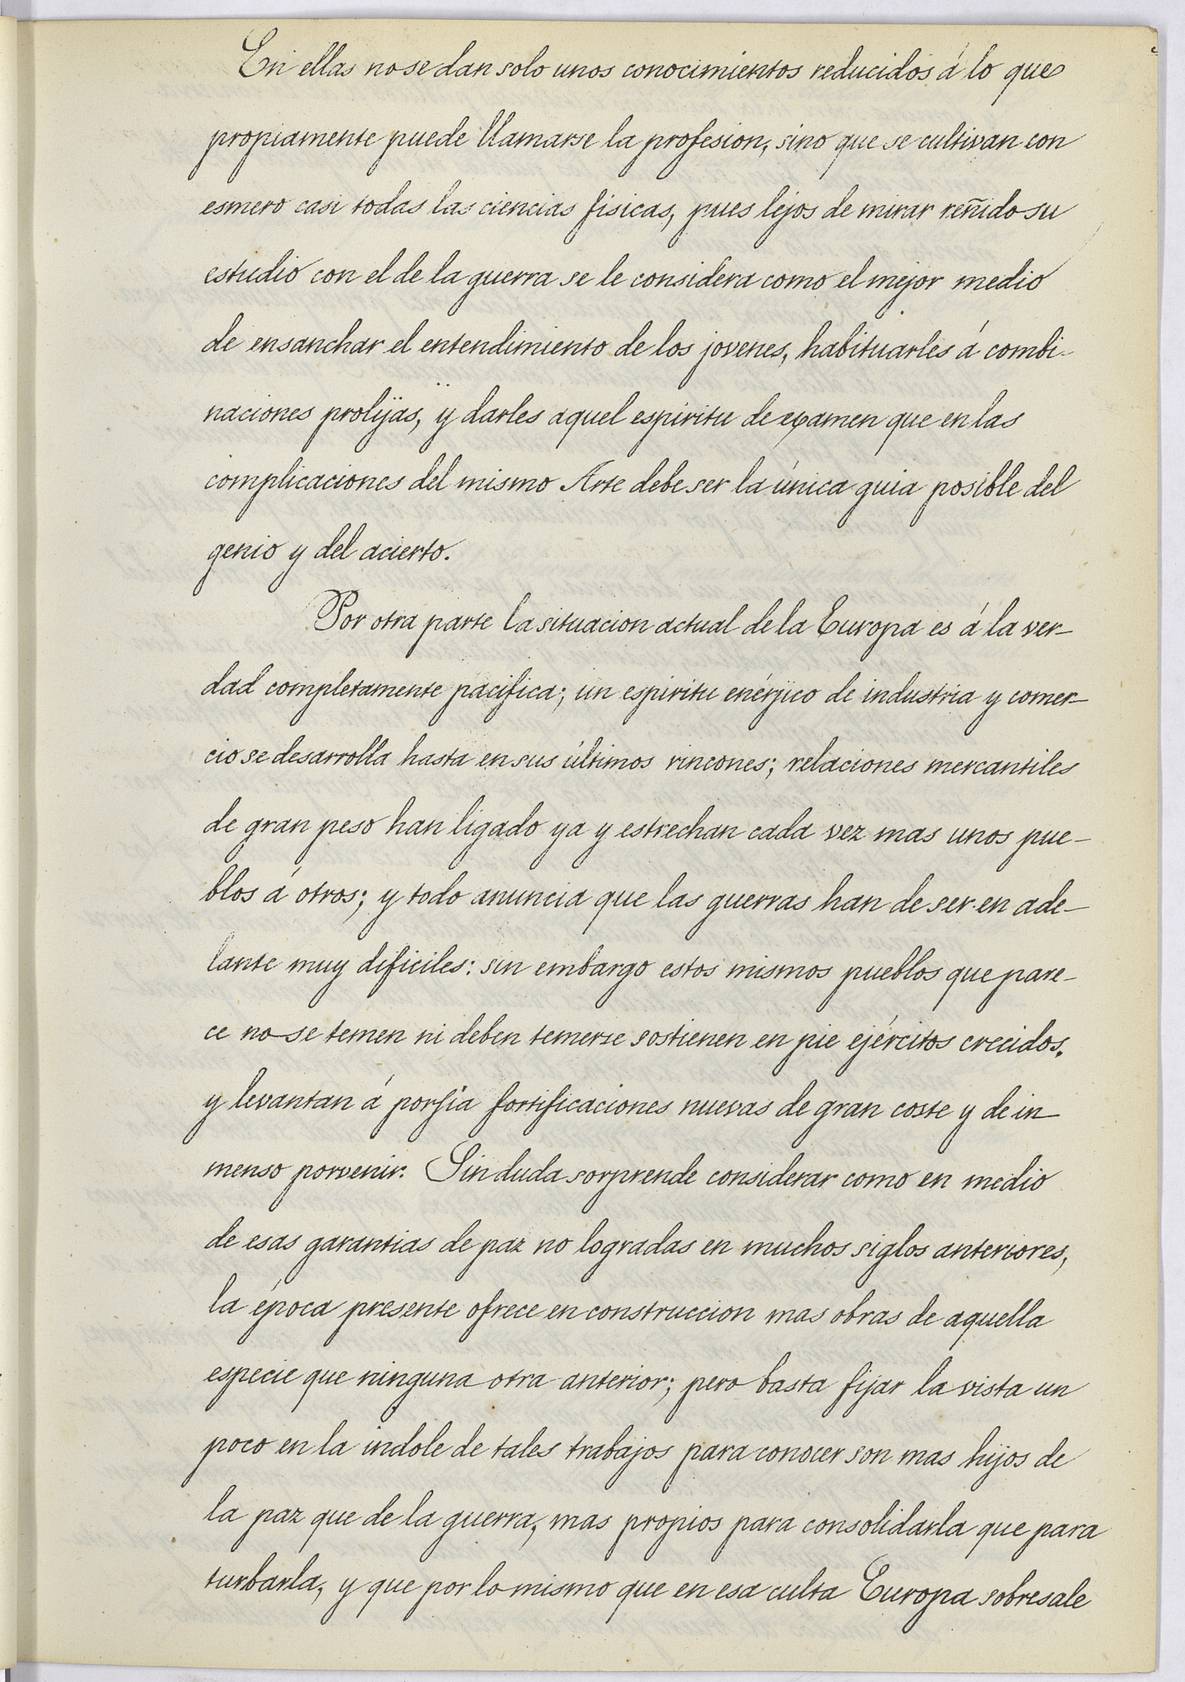 En ellas no se dan solo unos conocimientos reducidos á lo que
propiamente puede llamarse la profesion, sino que se cultivan con
esmero casi todas las ciencias fisicas, pues lejos de mirar reñido su
estudio con el de la guerra se le considera como el mejor medio
de ensanchar el entendimiento de los jovenes, habituarles á combi-
naciones prolijas, y darles aquel espiritu de examen que en las
complicaciones del mismo Arte debe ser la única guia posible del
genio y del acierto.
Por otra parte la situacion actual de la Europa es á la ver-
dad completamente pacifica; un espiritu enérjico de industria y comer-
cio se desarrolla hasta en sus últimos rincones; relaciones mercantiles
de gran peso han ligado ya y estrechan cada vez mas unos pue-
blos á otros; y todo anuncia que las guerras han de ser en ade-
lante muy dificiles: sin embargo estos mismos pueblos que pare-
ce no se temen ni deben temerse sostienen en pie ejércitos crecidos,
y levantan á porfia fortificaciones nuevas de gran coste y de in-
menso porvenir. Sin duda sorprende considerar como en medio
de esas garantias de paz no logradas en muchos siglos anteriores,
la época presente ofrece en construccion mas obras de aquella
especie que ninguna otra anterior; pero basta fijar la vista un
poco en la indole de tales trabajos para conocer son mas hijos de
la paz que de la guerra, mas propios para consolidarla que para
turbarla, y que por lo mismo que en esa culta Europa sobresale